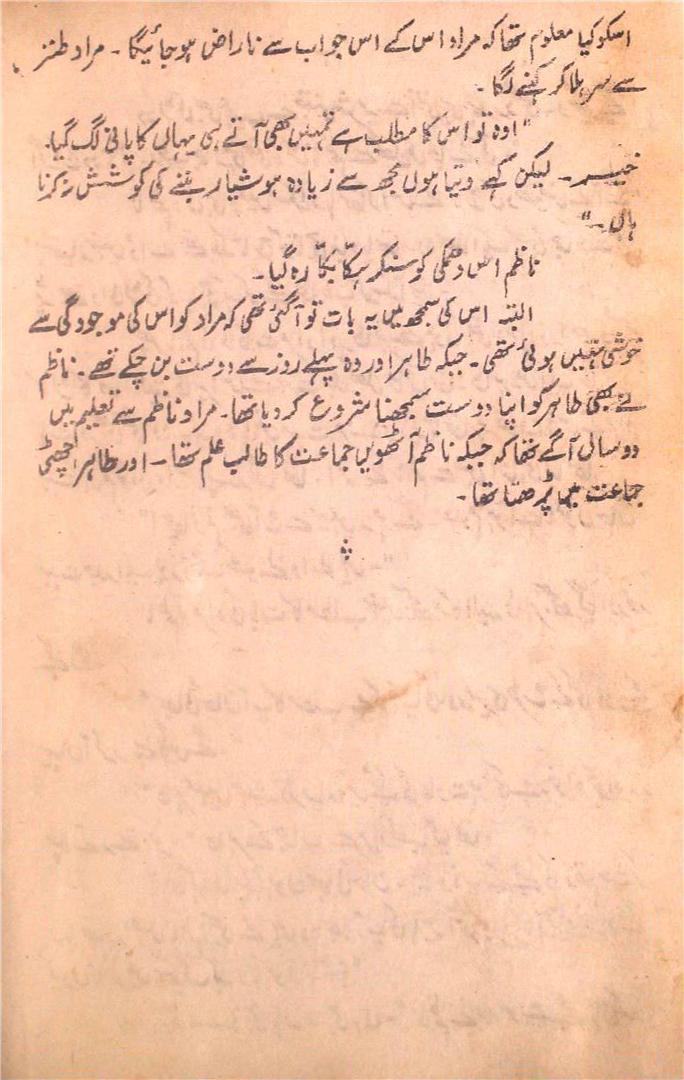 اسکو کیا معلوم تھا کہ مراد اس کے اس جواب سے ناراض ہو جائیگا ۔ مراد طنز
سے سر ہلا کر کہنے لگا ۔
"اوہ تو اس کا مطلب ہے تمہیں بھی آتے ہی یہاں کا پانی لگ گیا ۔
خیر ۔ لیکن کہے دیتا ہوں مجھ سے زیادہ ہوشیار بننے کی کوشش نہ کرنا
ہاں ۔"
ناظم اس دھمکی کو سنکر ہکا بکا رہ گیا ۔
البتہ اس کی سمجھ میں یہ بات تو آ گئی تھی کہ مراد کو اس کی موجودگی سے
خوشی نہیں ہوئی تھی ۔ جبکہ طاہر اور وہ پہلے روز سے دوست بن چکے تھے ۔ ناظم
نے بھی طاہر کو اپنا دوست سمجھنا شروع کر دیا تھا ۔ مراد ناظم سے تعلیم میں
دو سال آگے تھا کہ جبکہ ناظم آٹھویں جماعت کا طالب علم تھا ۔ اور طاہر چھٹی
جماعت میں پڑھتا تھا ۔